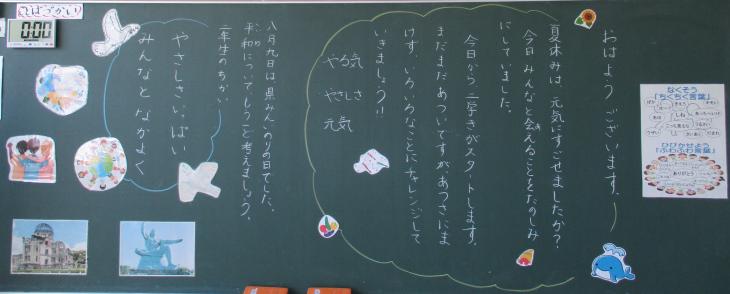 おはよう ございます。
夏休みは、元気にすごせましたか？
今日 みんなと会えることをたのしみ
にしていました。
今日から 二学きがスタートします。
まだまだあついですが、あつさにま
けず、いろいろなことにチャレンジして
いきましょう!!
やる気
やさしさ
元気
八月九日は県みんいのりの日でした。
平和についてしっこと考えましょう。
二年生のちかい
やさしさいっぱい
みんなと なかよく
0:00
なくそう
「ちくちく言葉」
しね
ひびかせよう
「ふわふわ言葉」
ありがとう